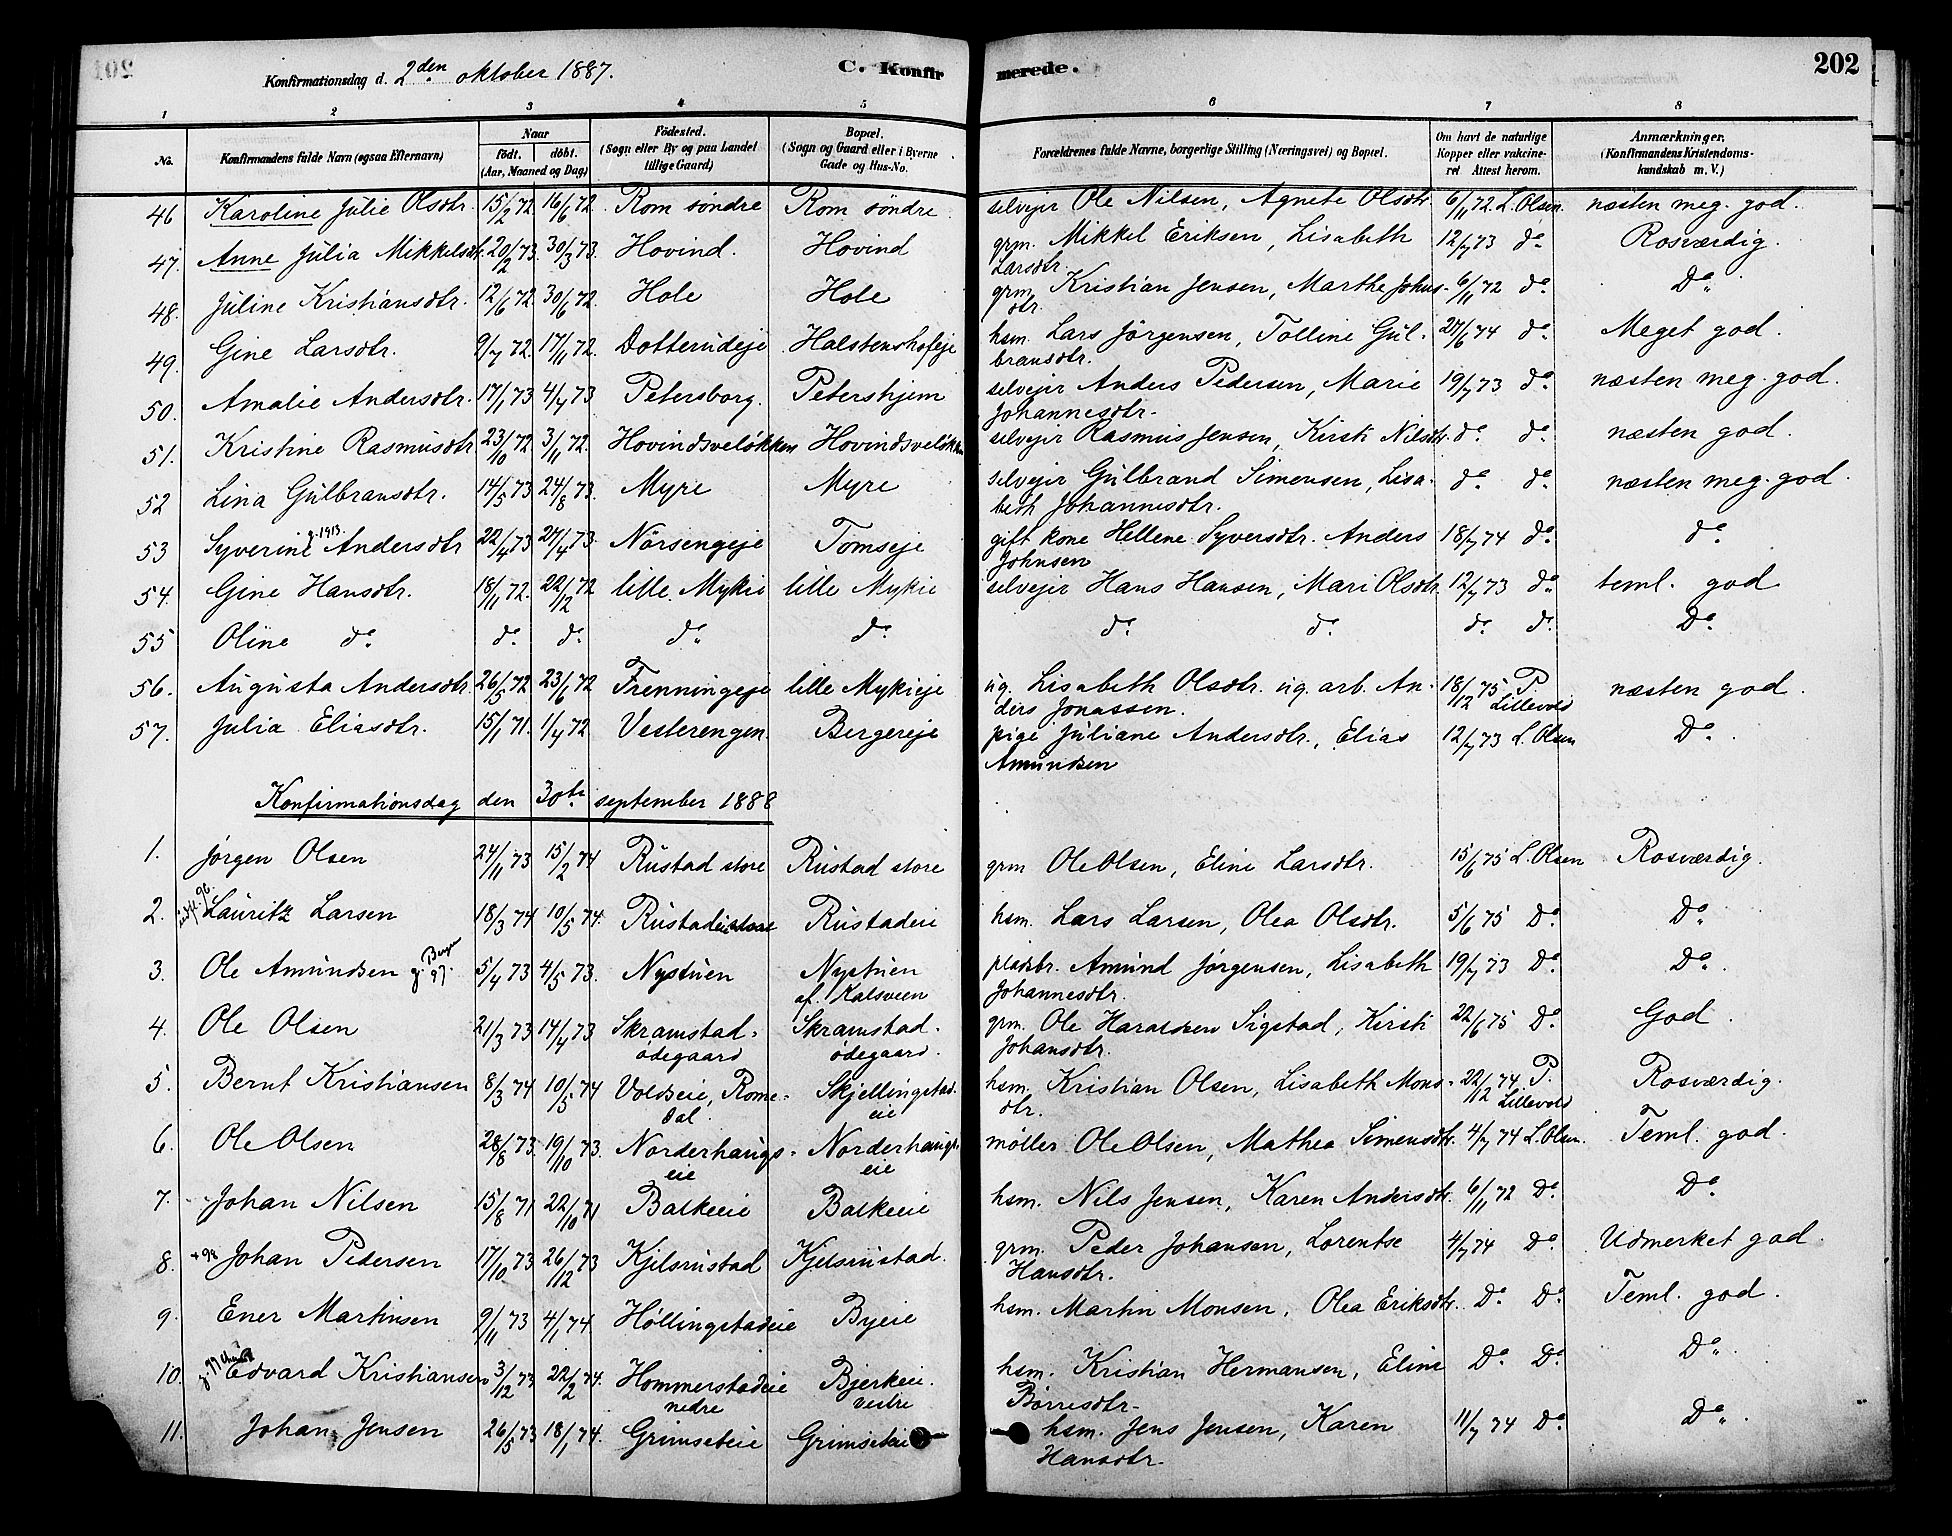 Konfirmationsdag d. 2den oktober 1887.
C. Konfirmerede.
202
1 2 3 4 5 6 7 8
No. Konfirmandens fulde Navn (ogsaa Efternavn) Naar födt. döbt. (Aar, Maaned og Dag) Födested. (Sogn eller By og paa Landet tillige Gaard) Bopæl. (Sogn og Gaard eller i Byerne Gade og Hus-No. Forældrenes fulde Navne, borgerlige Stilling (Næringsvei) og Bopæl. Om havt de naturlige Kopper eller vakcineret Attest herom. Anmærkninger. (Konfirmandens Kristendomskundskab m. V.)
46 Karoline Julie Olsdtr. 15/2 72 16/6 72 Rom söndre Rom söndre selvejer Ole Nilsen, Agnete Olsdtr. 6/11 72 L. Olsen næsten meg. god.
47. Anne Julia Mikkelsdtr. 20/2 73. 30/3 73. Hovind. Hovind grm. Mikkel Eriksen, Lisabeth 12/7 73 do. Rosværdig.
Larsdtr.
48. Juline Kristiansdtr. 12/6 72 30/6 72. Hole Hole grm. Kristian Jensen, Marthe Johns- 6/11 72 do. Do.
dtr.
49. Gine Larsdtr. 9/7 72. 17/11 72. Dotterudeje Halstenshofeje hsm. Lars Jörgensen, Tolline Gul- 27/6 74 do. Meget god.
bransdtr.
50. Amalie Andersdtr. 17/1 73 4/4 73 Petersborg. Petershjem selvejer Anders Pedersen, Marie 19/7 73 do. næsten meg. god.
Johannesdtr.
51. Kristine Rasmusdtr 23/10 72. 3/11 72. Hovindsveløkken Hovindsveløkken selvejer Rasmus Jensen, Kirsti Nilsdtr. do. do. næsten god.
52 Lina Gulbransdtr. 14/5 73 24/8 73. Myre Myre selvejer Gulbrand Simensen, Lisa- do. do. næsten meg. god.
beth Johannesdtr.
53 Syverine Andersdtr 22/4 73 27/4 73. Nörsengeje Tomseje gift kone Hellene Syversdtr. Anders 18/7 74 do. do.
1913
Johnsen
54. Gine Hansdtr. 18/11 72. 22/12 72 lille Mykie lille Mykie selvejer Hans Hansen, Mari Olsdtr. 12/7 73 do. teml. god
55 Oline do. do. do. do. do. do. do. do. do. Do.
56. Augusta Andersdtr. 26/5 72 23/6 72 Frenningeje lille Mykieje ug. Lisabeth Olsdtr. ug. arb. An- 18/12 75 P. Lillevold næsten god.
ders Jonassen.
57. Julia Eliasdtr. 15/1 71. 1/4 72 Vesterengen. Bergereje pige Juliane Andersdtr., Elias 12/7 73 L. Olsen Do.
Amundsen
Konfirmationsdag den 30te september 1888
1. Jørgen Olsen 24/11 73 15/2 74 Rustad store Rustad store grm Ole Olsen, Eline Larsdtr. 15/6 75 L. Olsen Rosværdig.
2. Lauritz Larsen 18/3 74 10/5 74. Rustadeie store Rustadeie hsm. Lars Larsen, Olea Olsdtr. 5/6 75 Do. Do.
3. Ole Amundsen g. 97. 5/4 73 4/5 73. Nystuen Nystuen pladsbr. Amund Jørgensen, Lisabeth 19/7 73 Do. Do.
af Kalsveen Johannesdtr.
4. Ole Olsen 21/3 73 14/4 73 Skramstad- Skramstad- grm. Ole Haraldsen Sigstad, Kirsti 22/6 75 Do. God.
ødegaard ødegaard. Johansdtr.
5. Bernt Kristiansen 8/3 74 10/5 74 Voldseie, Rome- Skjellingstad- hsm. Kristian Olsen, Lisabeth Mons- 22/12 74 P. Lillevold Rosværdig.
dal. eie dtr.
6. Ole Olsen 28/8 73. 19/10 73. Norderhaugs- Norderhaugs- møller Ole Olsen, Mathea Simensdtr. 4/7 74 L. Olsen. Teml. god.
eie eie
7. Johan Nilsen 15/8 71 22/10 71 Balkeeie Balkeeie hsm. Nils Jensen, Karen Andersdtr. 6/11 72 Do. Do.
8. +98 Johan Pedersen 17/10 73 26/12 73 Kjelsrustad Kjelsrustad. grm. Peder Johansen, Lorentse 4/7 74 Do. Udmerket god.
Hansdtr.
9. Ener Martinsen 9/11 73 4/1 74. Høllingstadeie Byeie hsm. Martin Monsen, Olea Eriksdtr. Do. Do. Teml. god.
10. Edvard Kristiansen 3/12 73 22/2 74. Hommerstadeie Bjerkeie. hsm. Kristian Hermansen, Eline Do. Do. Do.
nedre vestre Børresdtr.
11. Johan Jensen 26/5 73 18/1 74. Grimseteie Grimseteie hsm. Jens Jensen, Karen 11/7 74 Do. Do.
Hansdtr.